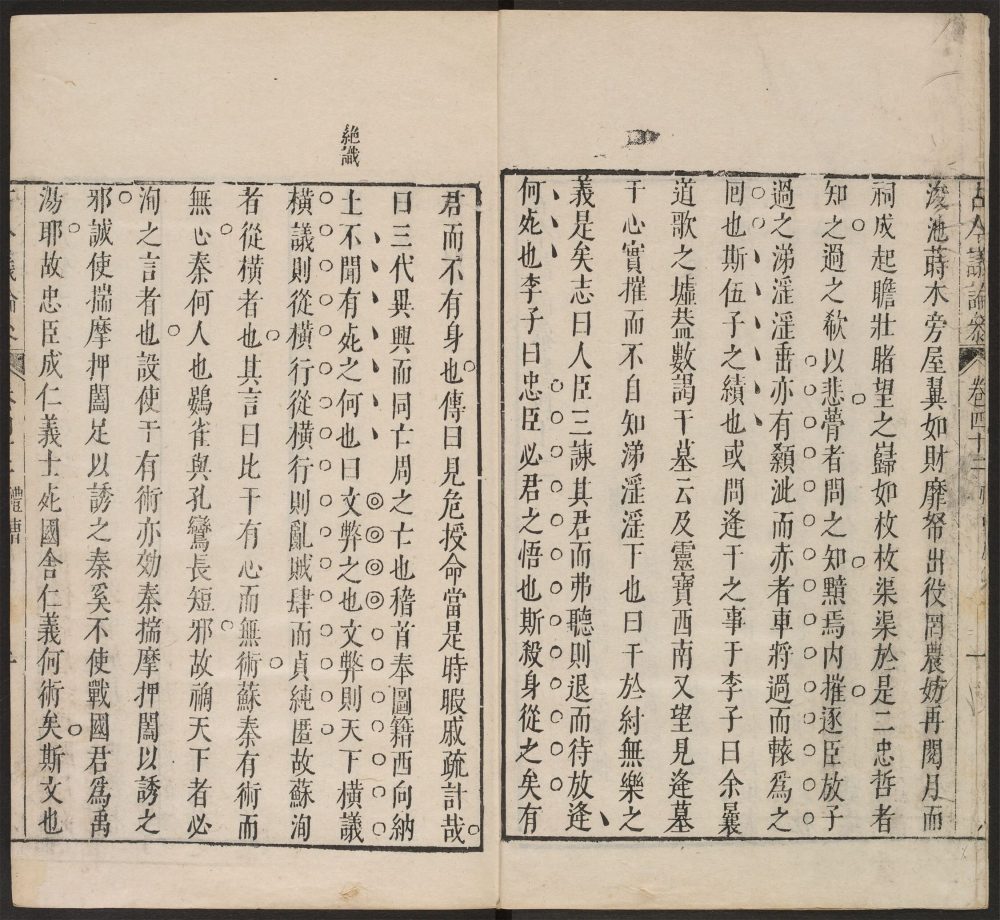 古今議論參 卷四十二
浚池蒔木旁屋翼如財靡帑出役罔農妨再閱月而
祠成起瞻壯睹望之巋如枚枚渠渠於是二忠哲者
知之過之欷以悲瞢者問之知黯焉内摧逐臣放子
過之涕淫淫垂亦有顙泚而赤者車將過而轅爲之
回也斯伍子之績也或問逢干之事于李子曰余曩
道歌之墟葢數謁干墓云及靈寶西南又望見逢墓
干心實摧而不自知涕淫淫下也曰干於紂無樂之
義是矣志曰人臣三諫其君而弗聽則退而待放逢
何死也李子曰忠臣必君之悟也斯殺身從之矣有
君而不有身也傳曰見危授命當是時暇戚疏計哉
絶識
曰三代異興而同亡周之亡也稽首奉圖籍西向納
土不聞有死之何也曰文弊之也文弊則天下橫議
橫議則從橫行從橫行則亂賊肆而貞純匿故蘇洵
者從橫者也其言曰比干有心而無術蘇秦有術而
無心秦何人也鷃雀與孔鸞長短邪故禍天下者必
洵之言者也設使干有術亦効秦揣摩押闔以誘之
邪誠使揣摩押闔足以誘之秦奚不使戰國君爲禹
湯耶故忠臣成仁義士死國舍仁義何術矣斯文也